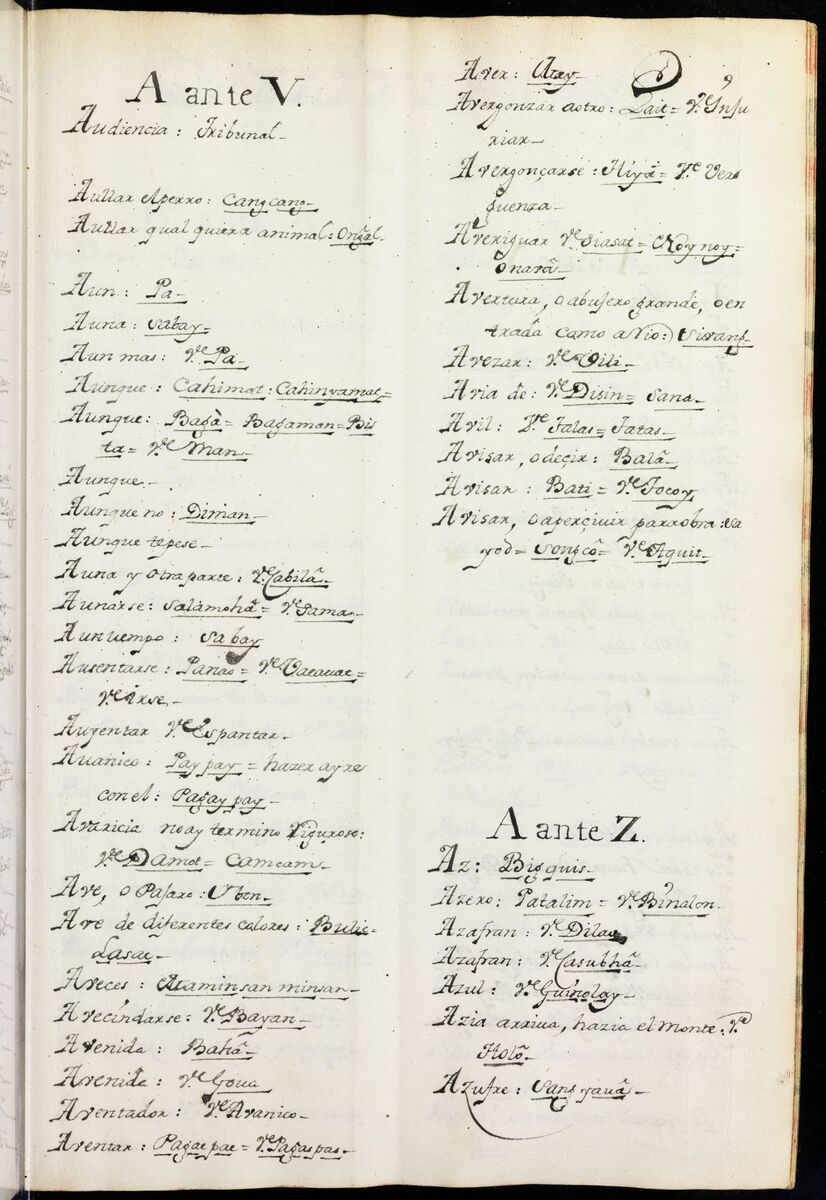 A ante V.
Audiencia: Tribunal_
Aullar el perro: Cangcang_
Aullar qual quiera animal: Ongal_
Aun: Pa_
Auna: Sabay_
Aun mas: Ve. Pa_
Aunque: Cahimat: Cahinyamat_
Aunque: Bagà= Bagaman= Bis
ta= Ve. Man_
Aunque_
Aunque no: Diman_
Aunque te pese_
Auna y otra parte: Ve. Cabilâ_
Aunarse: Salamohâ= Ve. Sama_
Aun tiempo: Sabay
Ausentarse: Panao=
Ve. irse_
Auyentar Ve. Espantar_
Auanico: Pay pay= hazer ayre
con el: Pagay pay_
Avaricia no ay termino Riguroso:
Ve. Damot= Camcam_
Ave, o Pajaro: Ybon_
Ave de diferentes colores: Bulic_
Lasac_
Aveces: Maminsan minsan_
Avecindarse: Ve. Bayan_
Avenida: Bahâ_
Avenida: Ve. Goua
Aventador: Ve. Avanico_
Aventar: Pagae pae= Ve. Pagaspas_
9
Aver: May_
Avergonzar aotro: Lait= Ve. Inju
riar_
Avergonçarse: Hiyâ= Ve. Ver
guenza_
Averiguar Ve. Siasat= Noynoy=
Onarâ_
Avertura, o abujero grande, o en
trada como a Rio: Sivang_
Avezar: Ve. Vili_
Avia de: Ve. Disin= Sana_
Avil: Ve. Talas= Tatas_
Avisar, o deçir: Balâ_
Avisar: Bati= Ve. Tocoy
Avisar, o aperçivir para obra: Sa
yod= Songcô= Ve. Aquit_
A ante Z.
Az: Bigquis_
Azero: Patalim= Ve. Binalon_
Azafran: Ve. Dilau
Azafran: Ve. Casubhâ_
Azul: Ve. Guinolay_
Azia arriua, hazia el monte: Ve.
Holô_
Azufre: Sangyauâ_